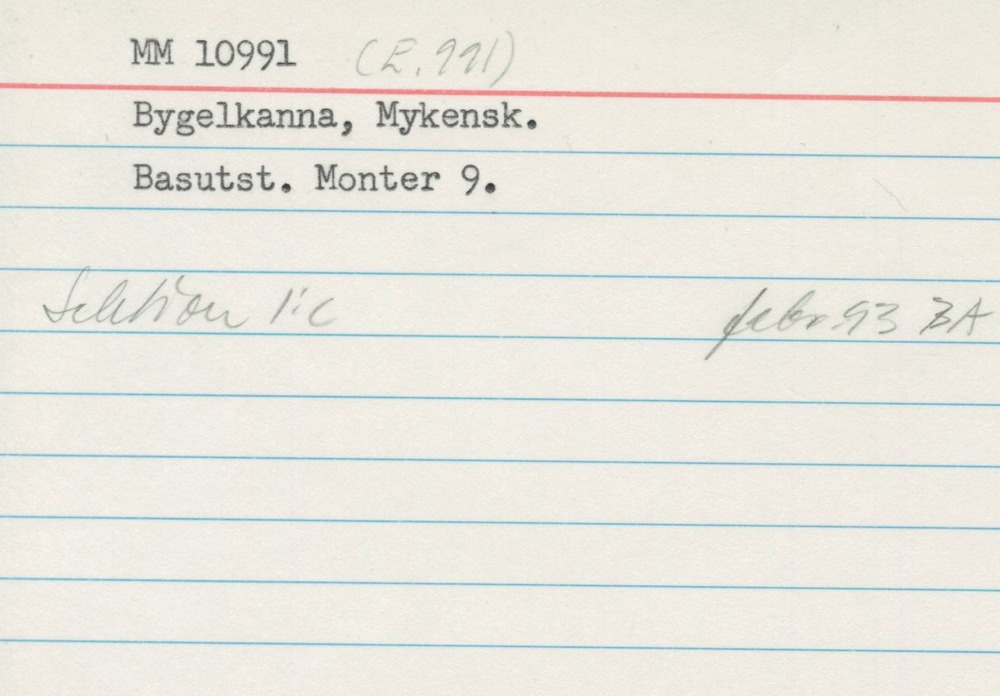 MM 10991 (E.991)
Bygelkanna, Mykensk.
Basutst. Monter 9.
Sektion 1:c febr. 93 BA